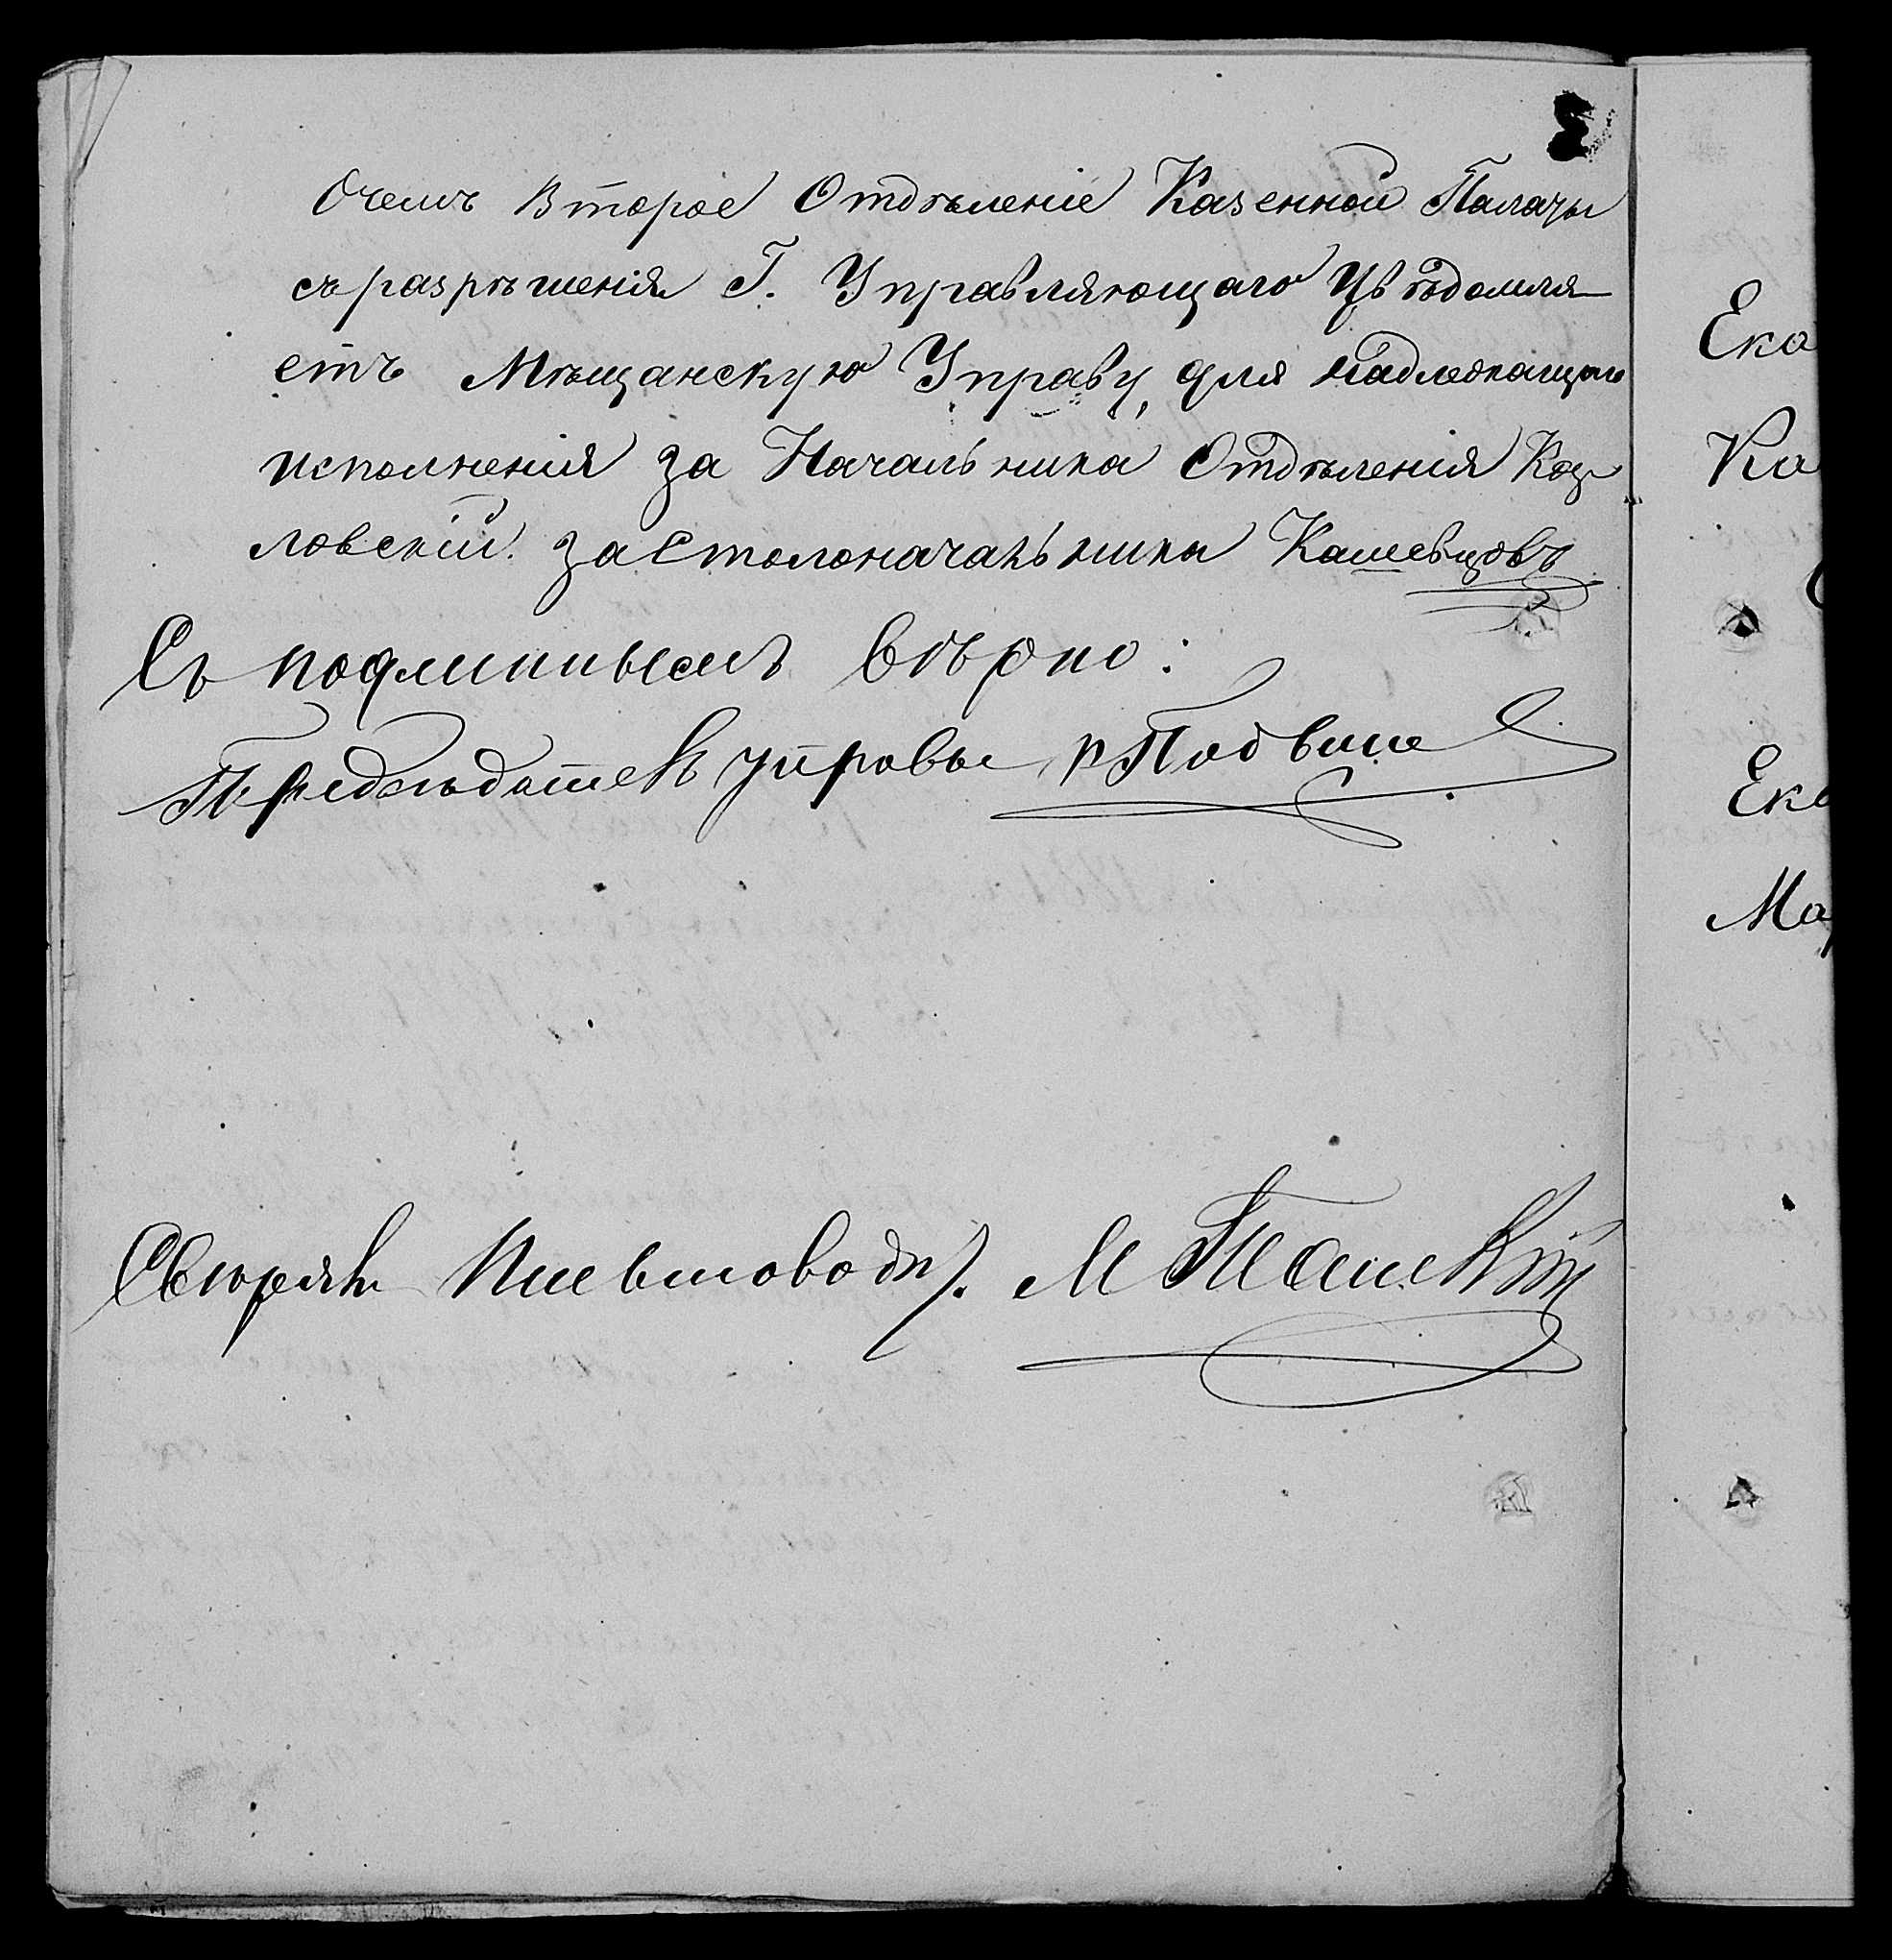 Очемъ Второе Отдѣленіе Казенной Палаты
съ разрѣшенія Г. Управляющаго Увѣдомля
етъ Мѣщанскую Управу, для надлежащаго
исполненія за Начальника Отдѣленія Коз
ловскій. за Столоначальника
Съ подлиннымъ вѣрно:
Предсѣдатель управы
Секрет. Письмоводит. М
Ека
Ка
Ека
Мар